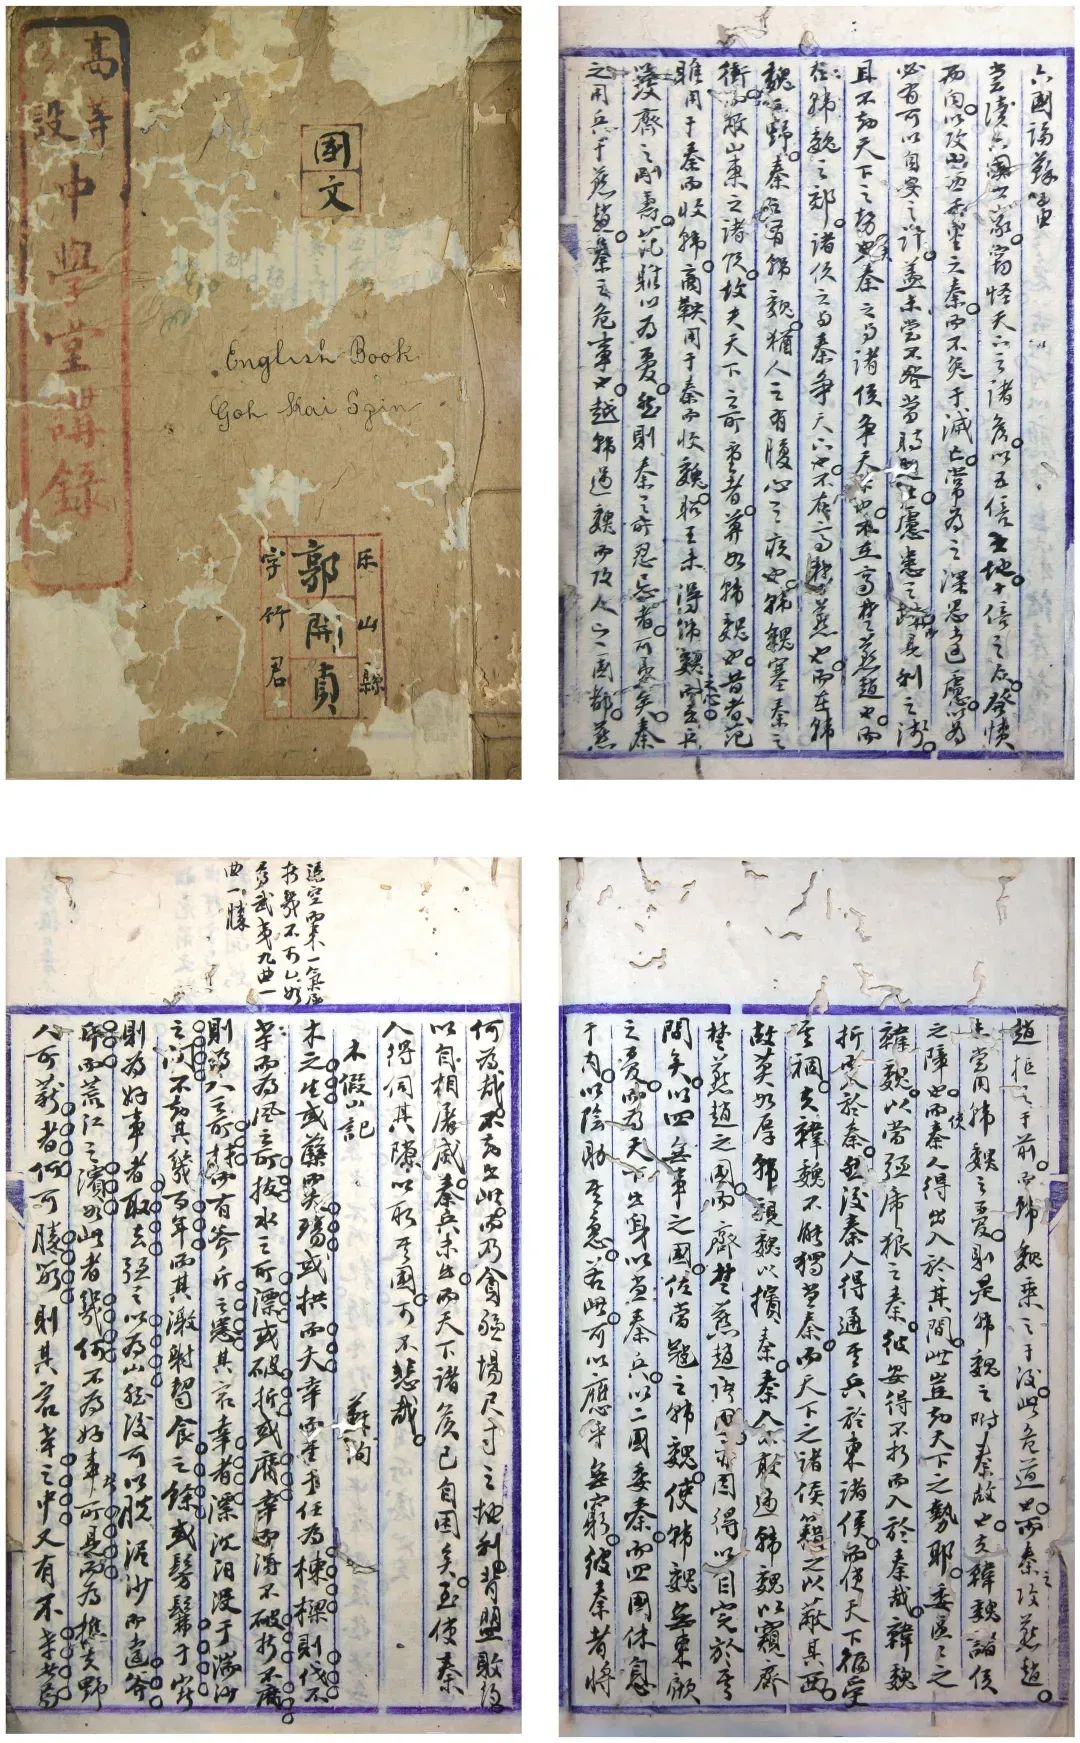 高等
分設
中學堂講錄
國文
English Book
Goh Kai Szin
乐山縣
郭開貞
字竹君
六國論 蘇轍
嘗讀六國世家竊怪天下之諸侯以五倍之地十倍之眾發憤
西向以攻山西千里之秦而不免于滅亡常為之深思遠慮以為
必有可以自安之計蓋未嘗不咎當時之士慮患之疏見利之淺
且不知天下之勢也夫秦之与諸侯爭天下也不在齊楚燕趙也而
在韓魏之郊諸侯之与秦爭天下也不在齊楚燕趙也而在韓
魏之野秦之有韓魏猶人之有腹心之疾也韓魏塞秦之
衝而蔽山東之諸侯故夫天下之所重者莫如韓魏也昔者范
雎用于秦而收韓商鞅用于秦而收魏昭王未得韓魏之心而出兵
攻齊之剛壽范雎以為憂然則秦之所忌者可見矣秦
之用兵于燕趙秦之危事也越韓過魏而攻人之國都燕
趙拒之于前而韓魏乘之于後此危道也而秦之攻燕趙
未嘗有韓魏之憂則是韓魏之附秦故也夫韓魏諸侯
之障也而使秦人得出入於其間此豈知天下之勢耶委區區之
韓魏以當強虎狼之秦彼安得不折而入於秦哉韓魏
折而入於秦然後秦人得通其兵於東諸侯而使天下徧受
其禍夫韓魏不能獨當秦而天下之諸侯藉之以蔽其西
故莫如厚韓親魏以擯秦秦人不敢逾韓魏以窺齊
楚燕趙之國而齊楚燕趙之國因得以自完於其
間矣以四無事之國佐當寇之韓魏使韓魏無東顧
之憂而為天下出身以當秦兵以二國委秦而四國休息
于內以陰助其急若此可以應乎無窮彼秦者將
何為哉不知出此而乃貪疆場尺寸之利背盟敗約
以自相屠滅秦兵未出而天下諸侯已自困矣至使秦
人得伺其隙以取其國可不悲哉
木假山記 蘇洵
木之生或蘗而殤或拱而夭幸而至于任為棟樑則伐不
幸而為風之所拔水之所漂或破折或腐幸而得不破折不腐
則為人之所材而有斧斤之患其最幸者漂沉汩沒于湍沙
之間不知其幾百年而其激射齧食之餘或髣髴于山者
則為好事者取去強之以為山然後可以脫泥沙而遠斧
斤而荒江之濱如此者幾何不為好事者所見而為樵夫野
人所薪者何可勝數則其最幸之中又有不幸者焉
憑空而來一氣
折幾不可
武夷九曲一
曲一勝